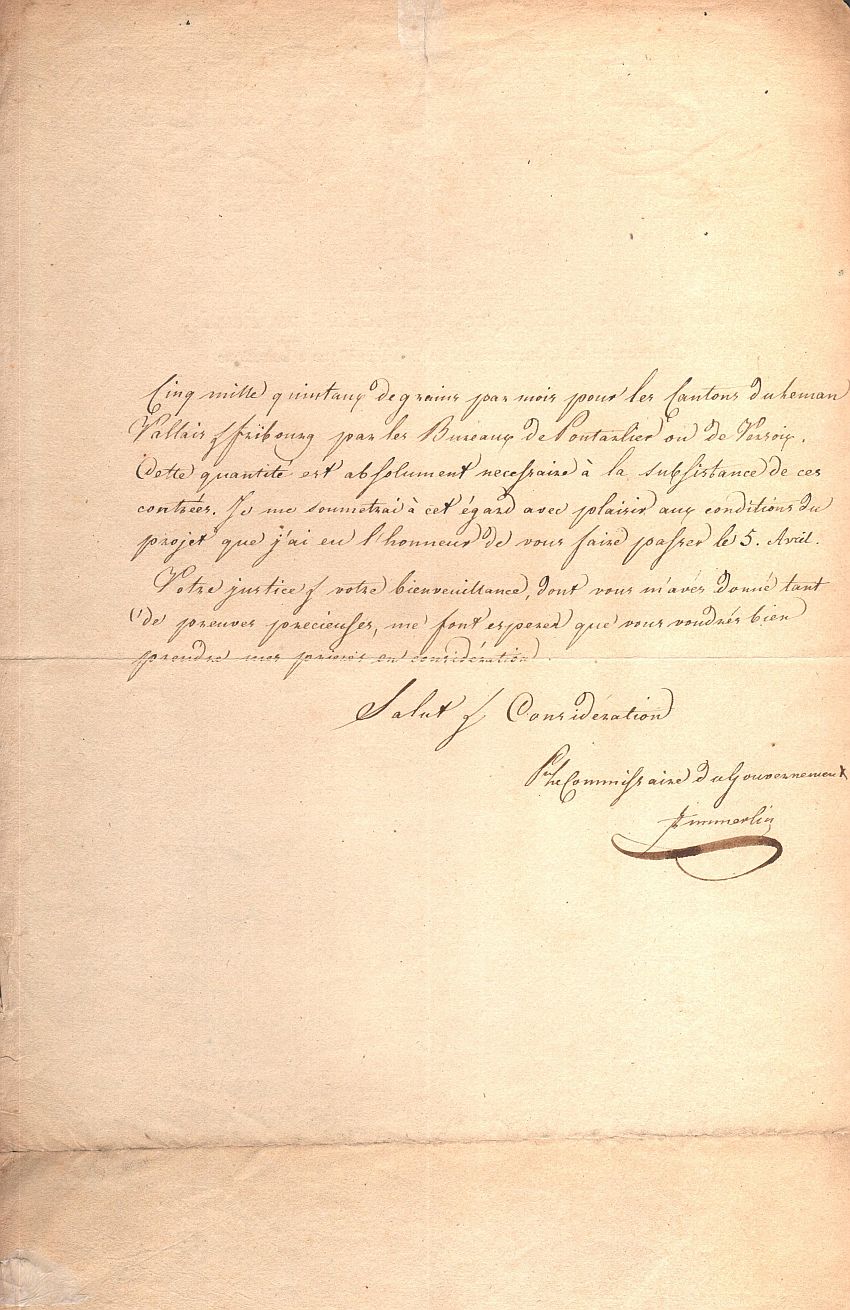 Cinq mille quintaux de grains par mois pour les Cantons du Leman
Vallais & Fribourg par les Bureaux de Pontarlier ou de Versoix.
Cette quantité est absolument necessaire à la subsistance de ces
contrées. Je me soumetrai à cet égard avec plaisir aux conditions du
projet que j'ai eu l'honneur de vous faire passer le 5. Avril.
Votre justice & votre bienveuillance, dont vous m'avés donné tant
de preuves precieuses, me font esperer que vous voudrés bien
prendre mes prieres en considération.
Salut & Considération
Commissaire du Gouvernement